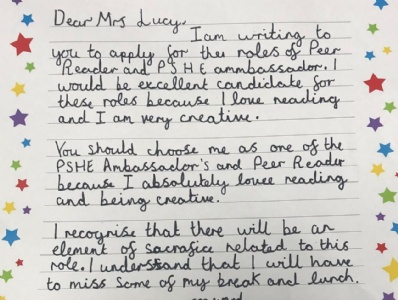 Dear Mrs Lucy,
I am writing to
you to apply for the roles of Peer
Reader and PSHE ammbassador. I
would be excellent candidate for
these roles because I love reading
and I am very creative.
You should choose me as one of the
PSHE Ambassador's and Peer Reader
because I absolutely love reading
and being creative.
I recognise that there will be an
element of sacrafice related to this
role. I understand that I will have
to miss some of my break and lunch.